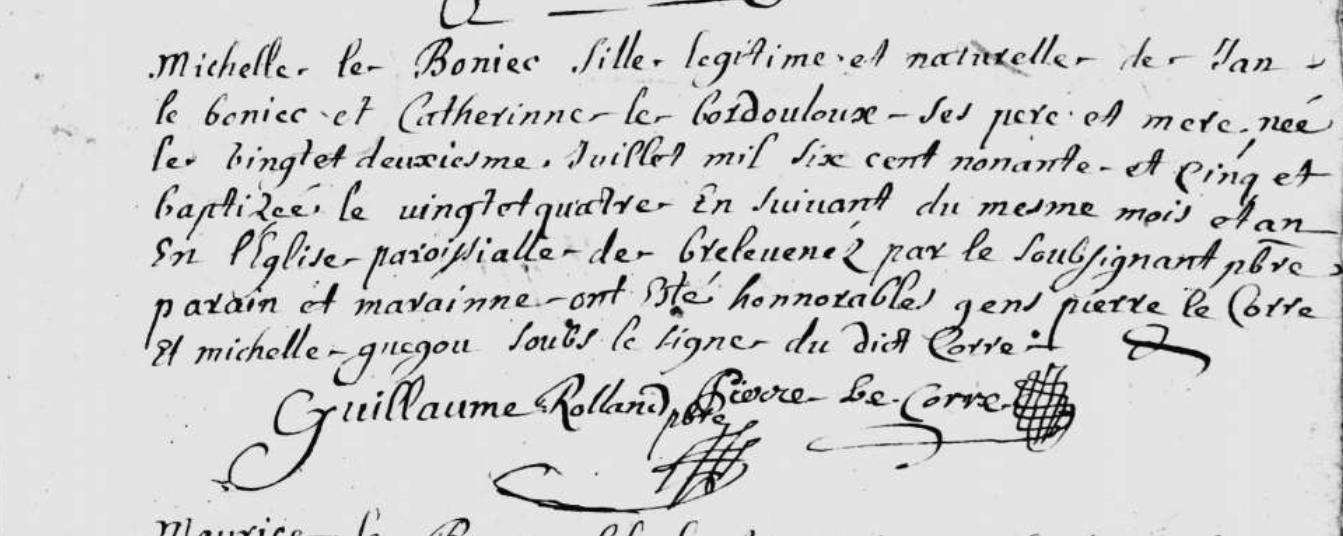 Michelle le Boniec fille legitime et naturelle de Jan
le boniec et Catherinne le bordouloux ses pere et mere née
le vingt et deuxiesme Juillet mil six cent nonante et cinq et
baptizée le vingt et quatre En suivant du mesme mois et an
En l'Eglise paroissialle de breleuenéz par le soubsignant pbre
parain et marainne ont Esté honnorables gens pierre le Corre
Et michelle guegou soubs le signe du dict Corre
Guillaume Rolland pbre Pierre Le Corre
Maurice le